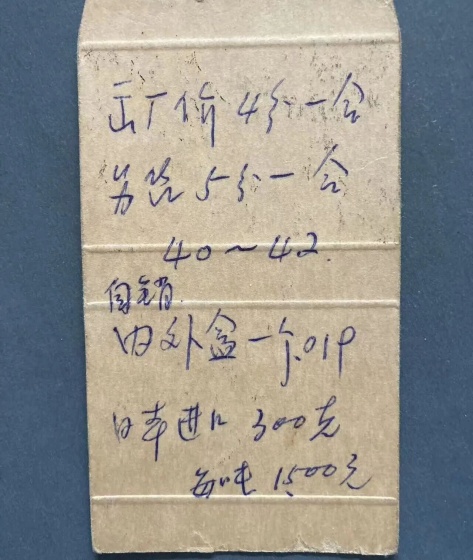 出厂价4分一合
另售5分一合
40～42
自销
内外盒一个.019
日本进口300克
每吨1500元